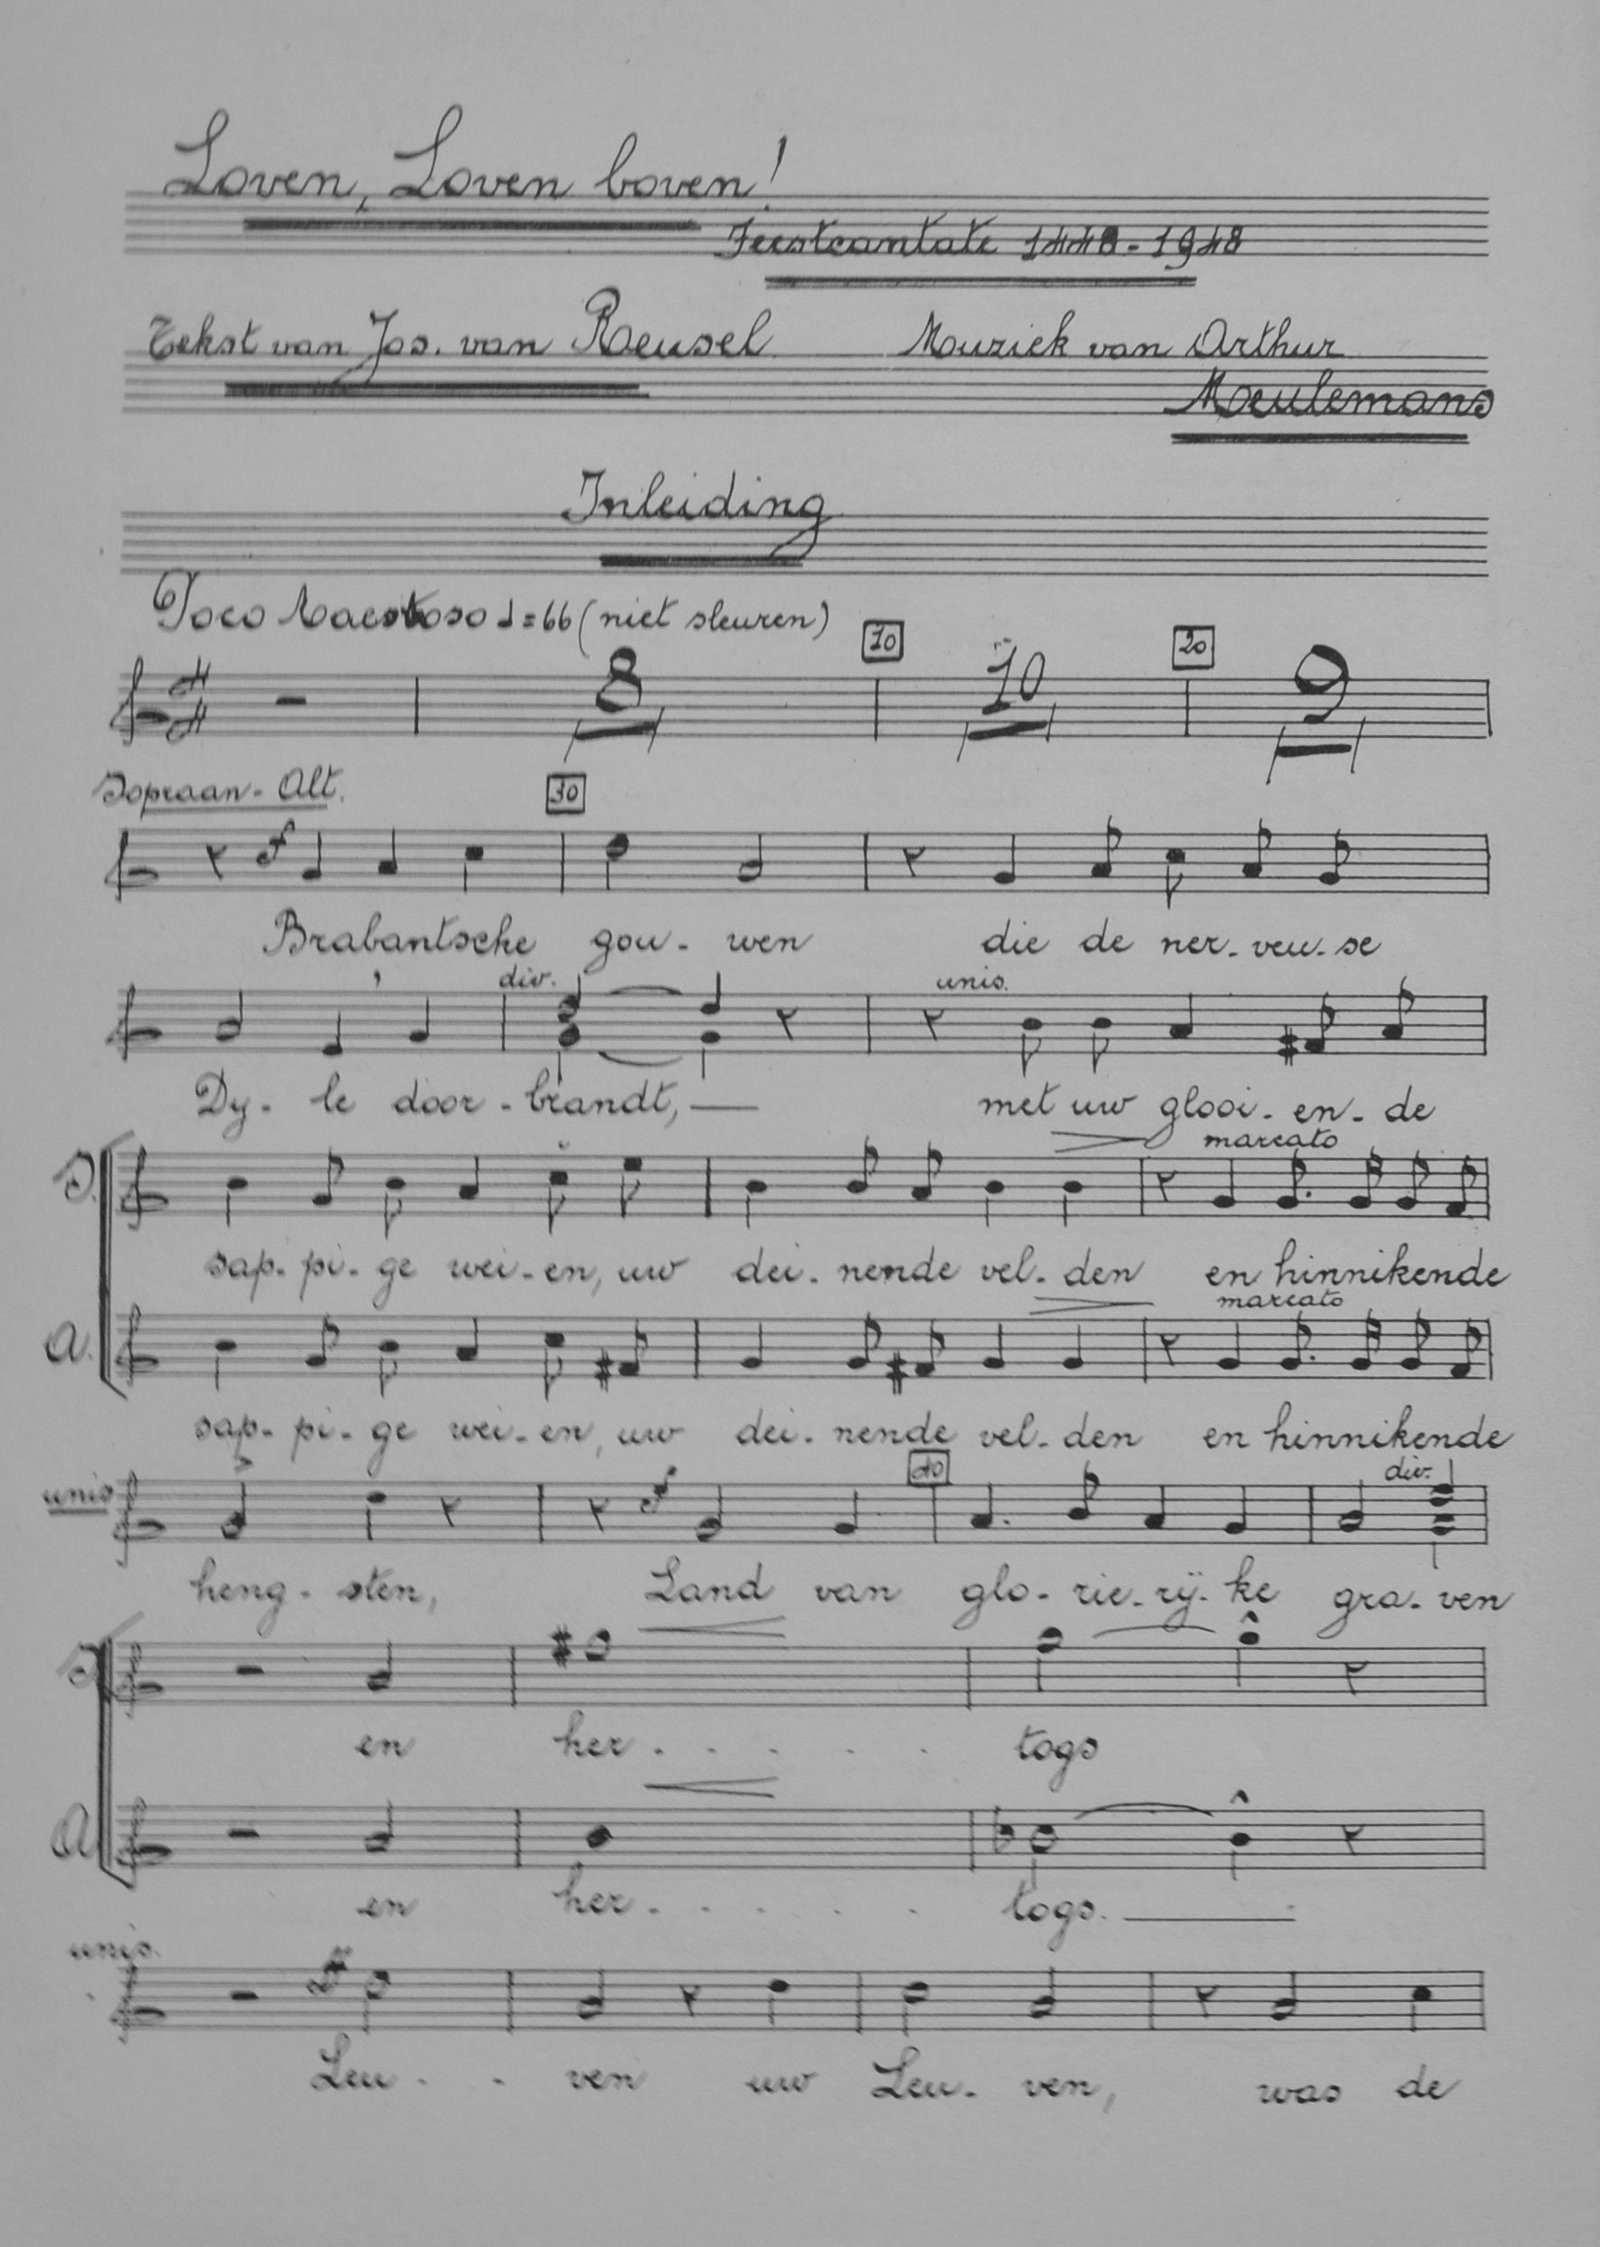 Loven, Loven boven!
Feestcantate 1448-1948
Tekst van Jos. van Reusel Muziek van Arthur
Meulemans
Inleiding
Poco Maestoso ♩=66 (niet sleuren)
10 20
4 4 8 10 9
Sopraan - Alt. 30
f
Brabantsche gou - wen die de ner - veu - se
div. unis.
Dy - le door - brandt, met uw glooi - en - de
marcato
S.
sap - pi - ge wei - en, uw dei - nende vel - den en hinnikende
marcato
A.
sap - pi - ge wei - en, uw dei - nende vel - den en hinnikende
unis f 40 div.
heng - sten, Land van glo - rie - rij - ke gra - ven
S.
en her - - - - - togs
A.
en her - - - - - togs.
unis. ff
Leu - - ven uw Leu - ven, was de